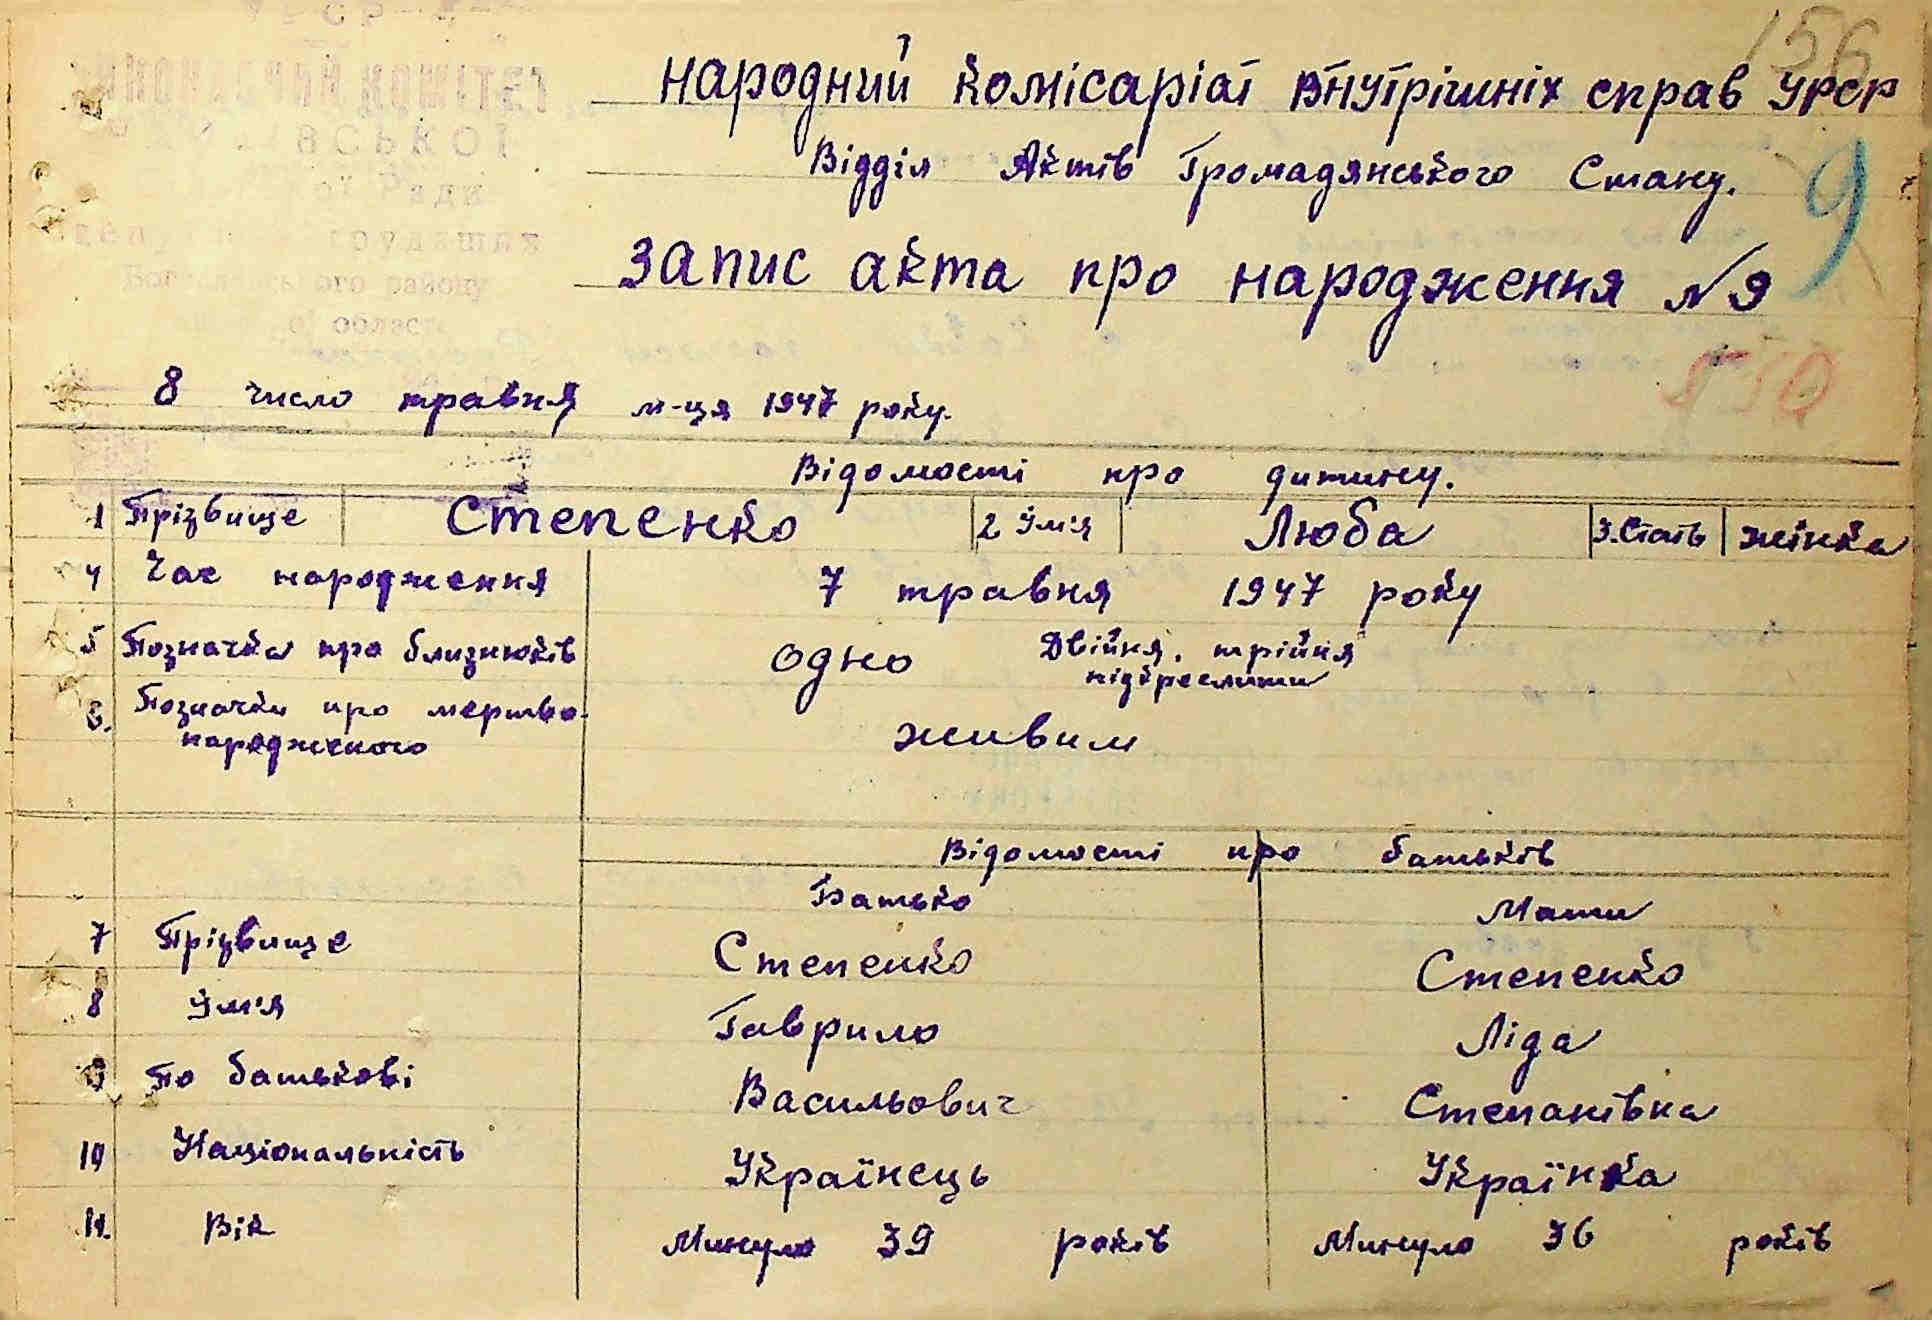 156
народний комісаріат внутрішніх справ УРСР
Відділ Актів Громадянського Стану.
9
Запис акта про народження №9
550
8 число травня м-ця 1947 року.
Відомості про дитину.
1 Прізвище Степенко 2 Ім'я Люба 3. Стать жінка
4 Час народження 7 травня 1947 року
5 Позначка про близнюків одно Двійня, трійня
підкреслити
6. Позначки про мертво-
народженого живим
Відомості про батьків
Батько Мати
7 Прізвище Степенко Степенко
8 Ім'я Гаврило Ліда
9 По батькові Васильович Степанівна
10 Національність Українець Українка
11. Вік Минуло 39 років Минуло 36 років